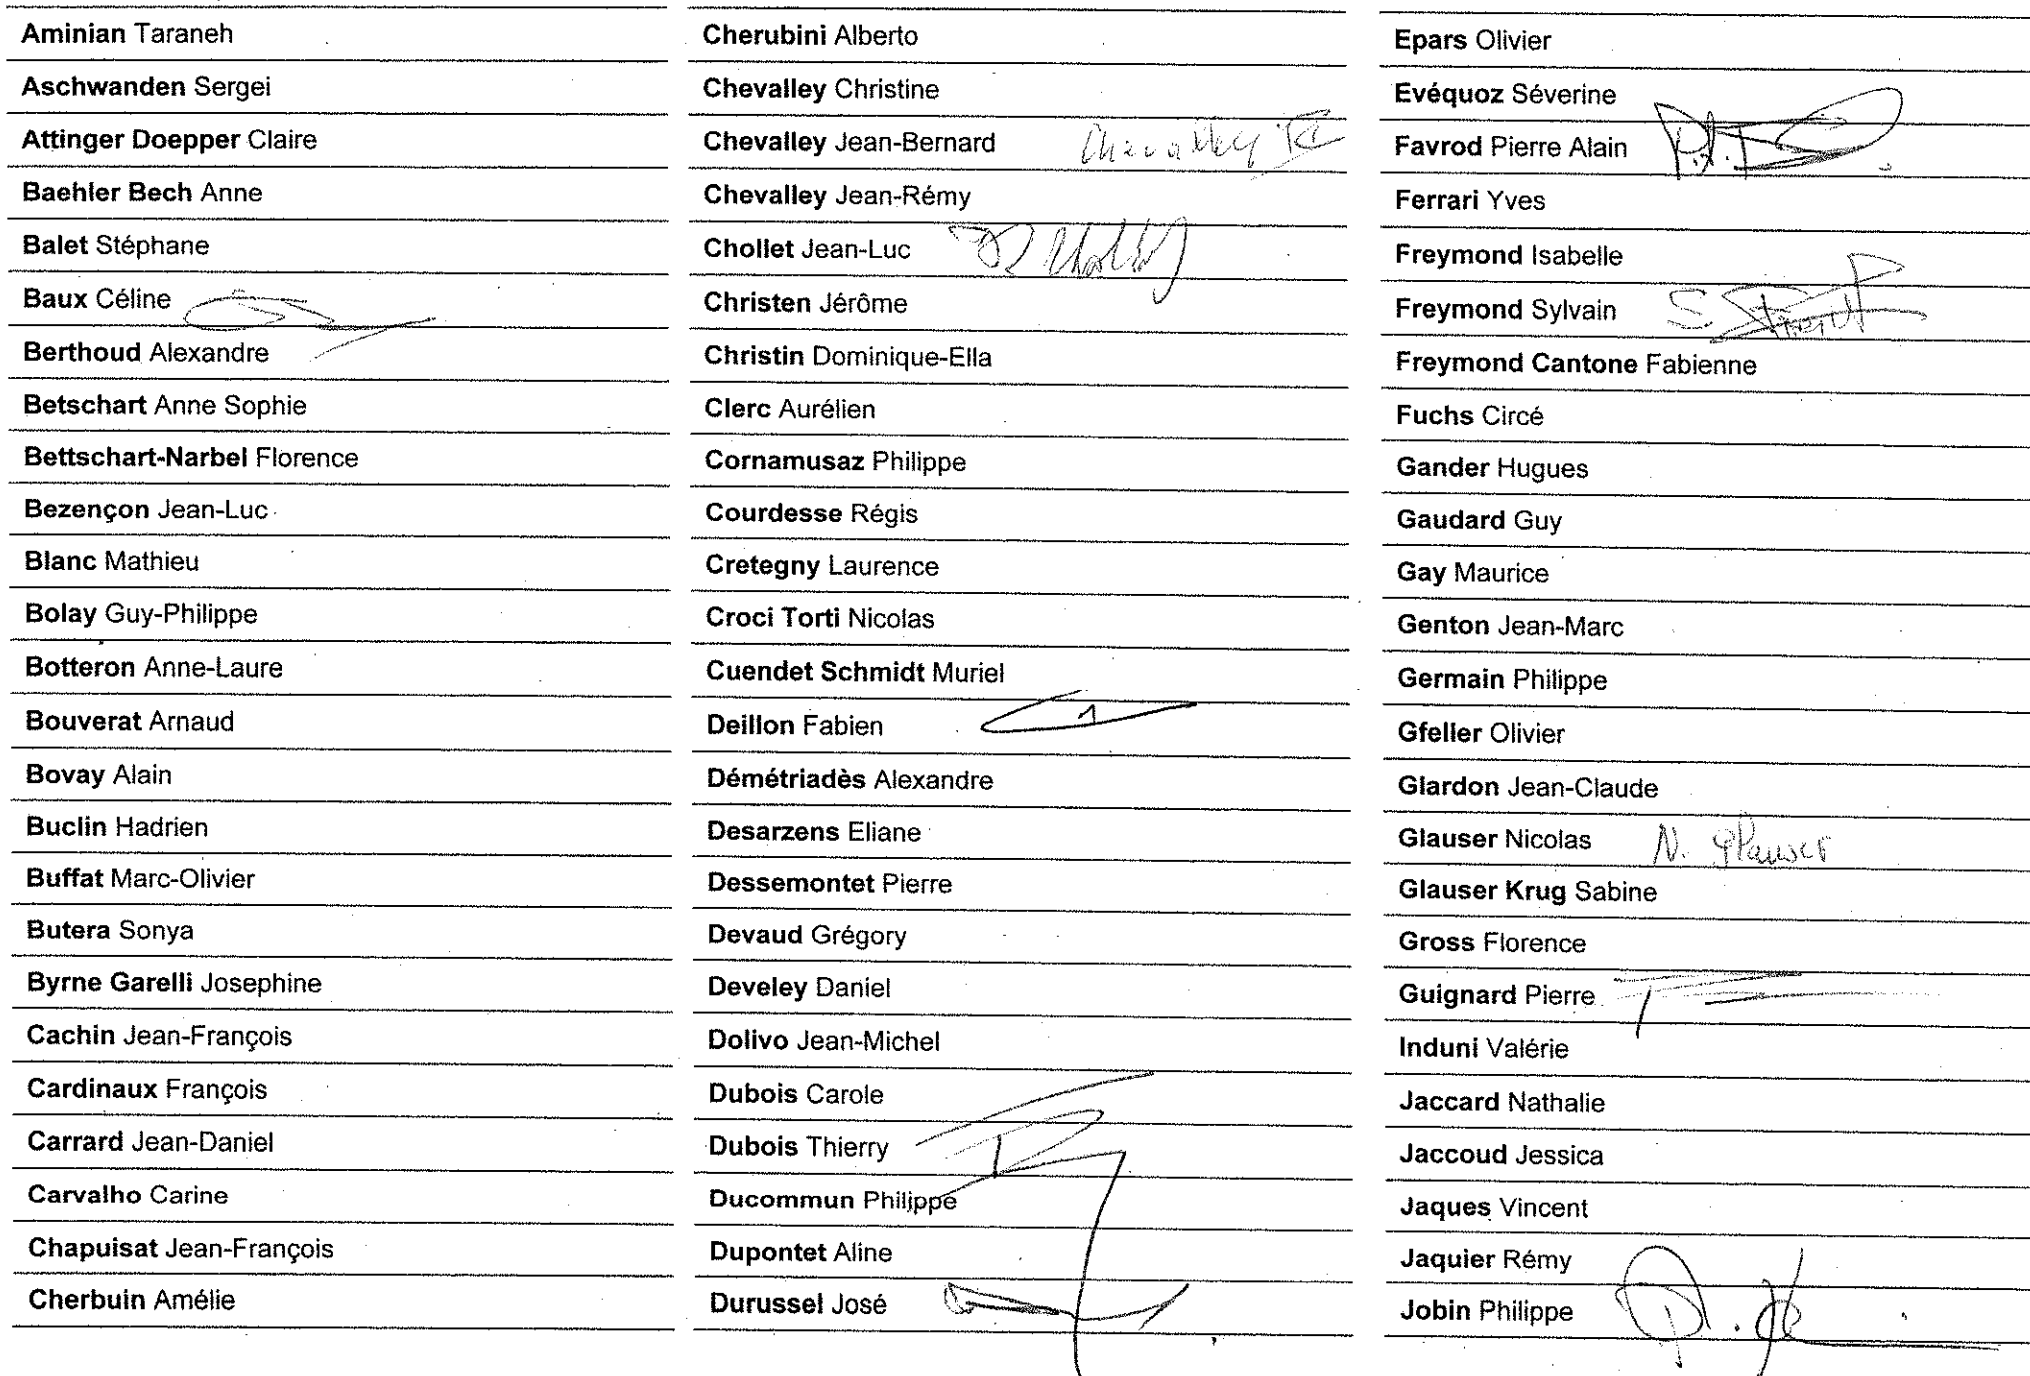 Aminian Taraneh
Aschwanden Sergei
Attinger Doepper Claire
Baehler Bech Anne
Balet Stéphane
Baux Céline
Berthoud Alexandre
Betschart Anne Sophie
Bettschart-Narbel Florence
Bezençon Jean-Luc
Blanc Mathieu
Bolay Guy-Philippe
Botteron Anne-Laure
Bouverat Arnaud
Bovay Alain
Buclin Hadrien
Buffat Marc-Olivier
Butera Sonya
Byrne Garelli Josephine
Cachin Jean-François
Cardinaux François
Carrard Jean-Daniel
Carvalho Carine
Chapuisat Jean-François
Cherbuin Amélie
Cherubini Alberto
Chevalley Christine
Chevalley Jean-Bernard Chevalley
Chevalley Jean-Rémy
Chollet Jean-Luc
Christen Jérôme
Christin Dominique-Ella
Clerc Aurélien
Cornamusaz Philippe
Courdesse Régis
Cretegny Laurence
Croci Torti Nicolas
Cuendet Schmidt Muriel
Deillon Fabien
Démétriadès Alexandre
Desarzens Eliane
Dessemontet Pierre
Devaud Grégory
Develey Daniel
Dolivo Jean-Michel
Dubois Carole
Dubois Thierry
Ducommun Philippe
Dupontet Aline
Durussel José
Epars Olivier
Evéquoz Séverine
Favrod Pierre Alain
Ferrari Yves
Freymond Isabelle
Freymond Sylvain
Freymond Cantone Fabienne
Fuchs Circé
Gander Hugues
Gaudard Guy
Gay Maurice
Genton Jean-Marc
Germain Philippe
Gfeller Olivier
Glardon Jean-Claude
Glauser Nicolas N. Glauser
Glauser Krug Sabine
Gross Florence
Guignard Pierre
Induni Valérie
Jaccard Nathalie
Jaccoud Jessica
Jaques Vincent
Jaquier Rémy
Jobin Philippe